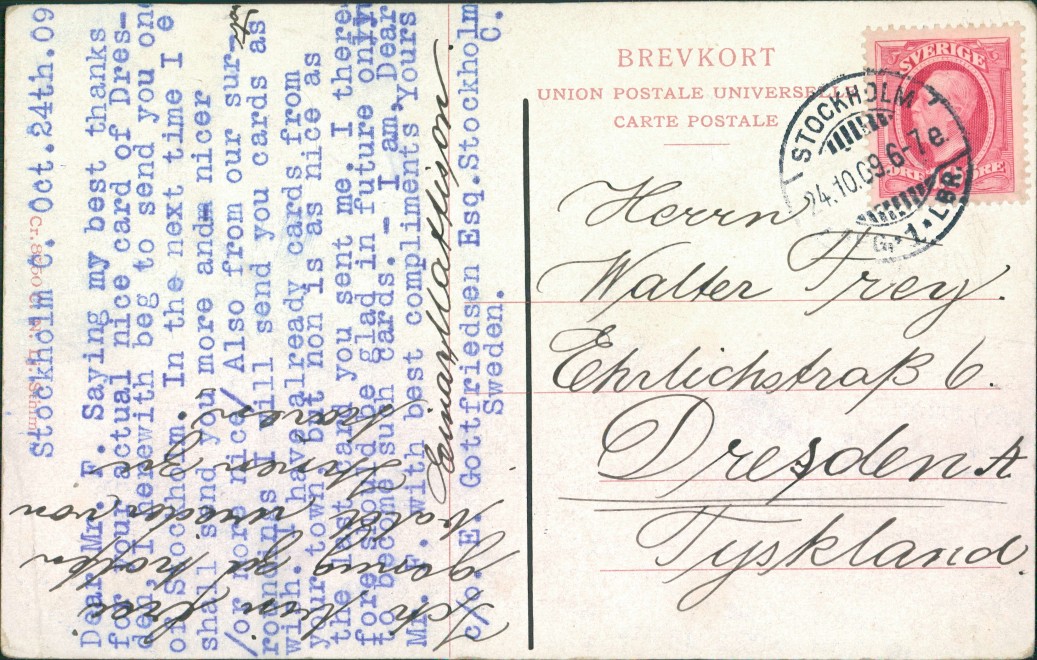 Stockholm C. Oct.24th.09
Dear Mr. F. Saying my best thanks
for your actual nice card of Dres-
den, I herewith beg to send you one
of Stockholm. In the next time I
shall send you more and nicer
/or more nice/ Also from our sur-
rounds I will send you cards as
with. I have already cards from
your town but non is as nice as
the last card you sent me. I there
fore should be glad in future only
to become such cards. - I am, Dear
Mr. F. with best compliments Yours
Einar Mattisson
c/o. E. Gottfriedsen Esq. Stockholm C.
Sweden.
Ich bin
hoffen
bald wieder von
Ihnen zu
hören
BREVKORT
UNION POSTALE UNIVERSELLE
CARTE POSTALE
SVERIGE
STOCKHOLM
24.10.09.6-7e.
1. LBR.
Herrn
Walter Frey.
Ehrlichstraß 6.
Dresden A
Tyskland.